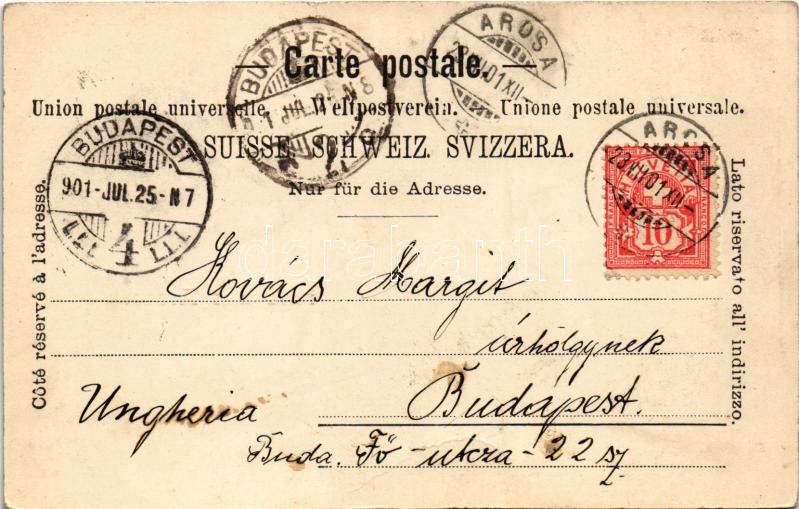 Carte postale.
Union postale universelle. Weltpostverein. Unione postale universale.
SUISSE. SCHWEIZ. SVIZZERA.
Nur für die Adresse.
Côté réservé à l'adresse.
Lato riservato all' indirizzo.
BUDAPEST
BUDAPEST
901-JUL.25-N7
4
AROSA
AROSA
10
Kovács Margit
úrhölgynek
Ungheria
Budapest.
Buda. Fő-utcza-22 sz
darabanth